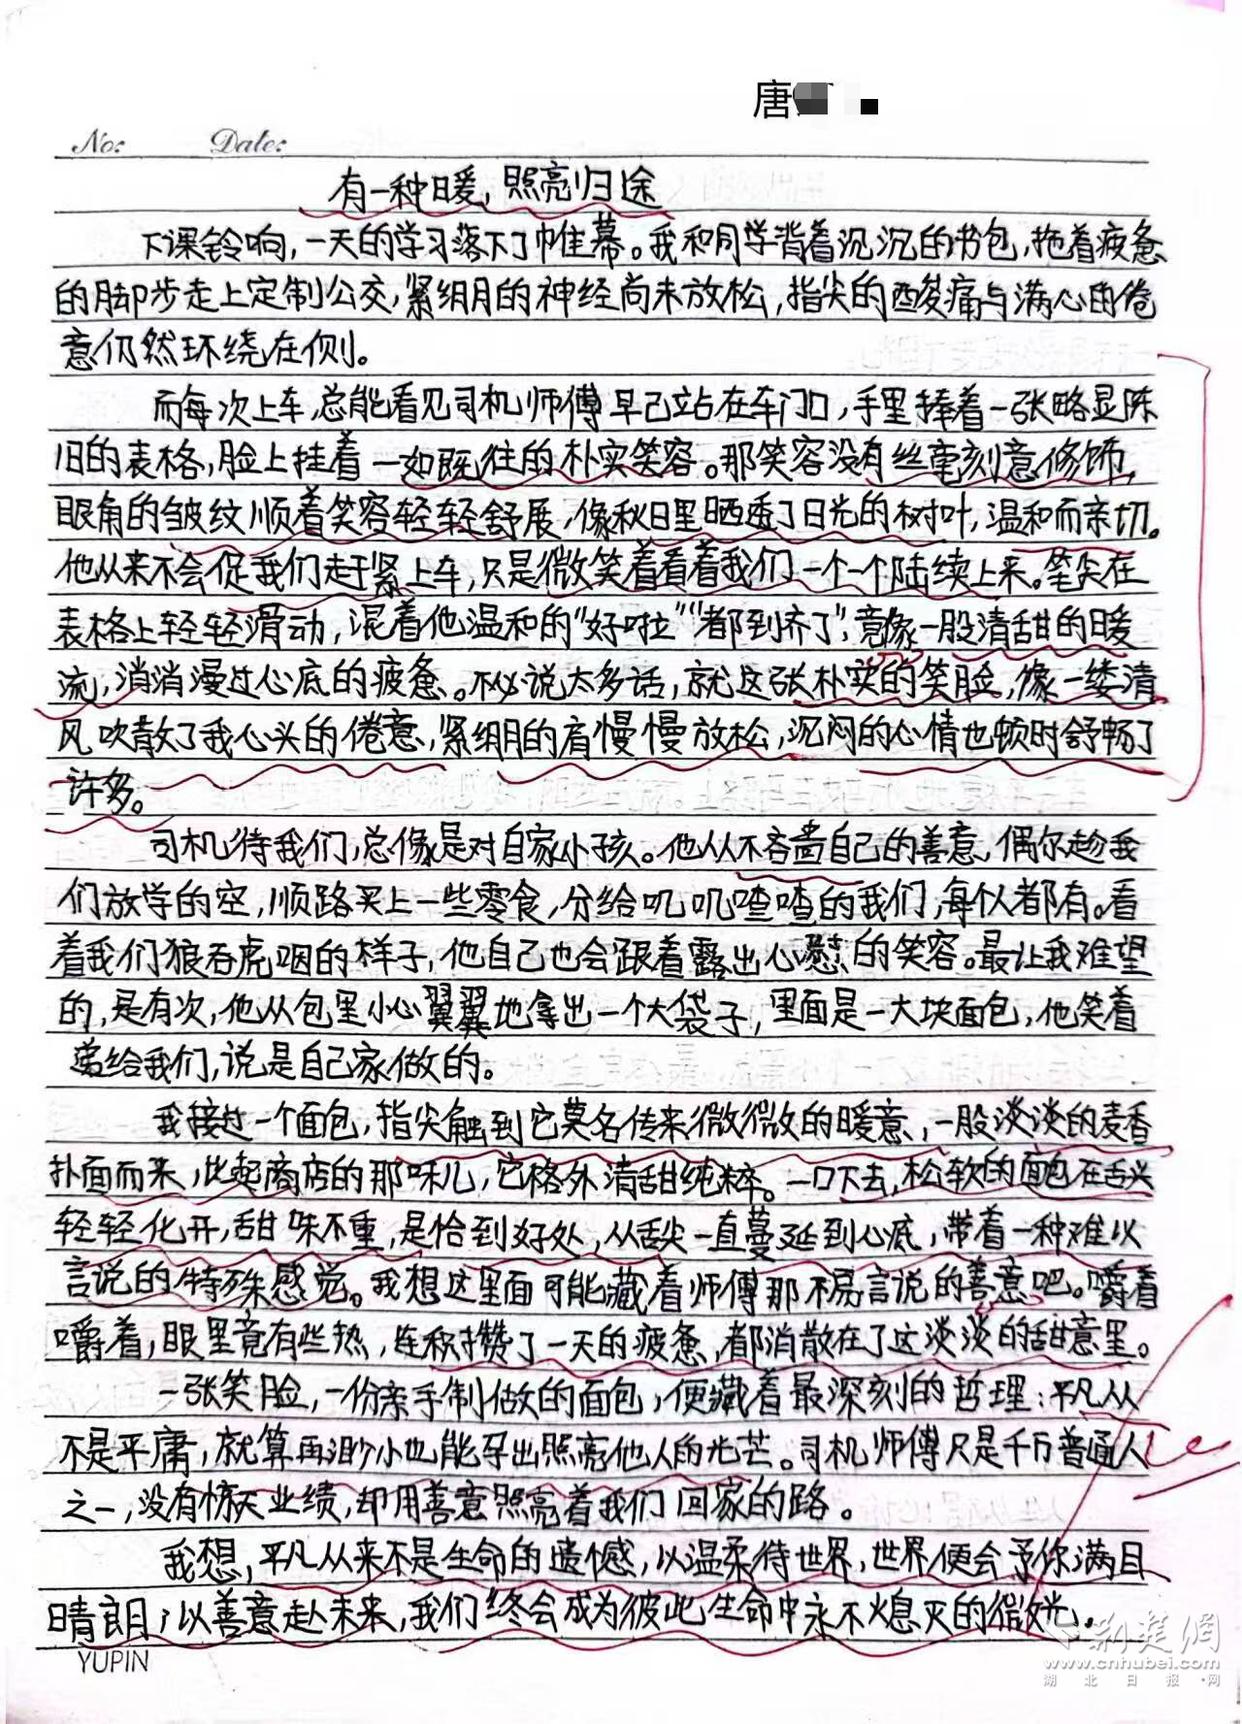 唐
No: Date:
有一种暖，照亮归途
下课铃响，一天的学习落下了帷幕。我和同学背着沉沉的书包，拖着疲惫
的脚步走上定制公交，紧绷的神经尚未放松，指尖的酸痛与满心的倦
意仍然环绕在侧。
而每次上车，总能看见司机师傅早已站在车门口，手里捧着一张略显陈
旧的表格，脸上挂着一如既往的朴实笑容。那笑容没有丝毫刻意修饰，
眼角的皱纹顺着笑容轻轻舒展，像秋日里晒透了日光的树叶，温和而亲切。
他从来不会促我们赶紧上车，只是微笑着看着我们一个一个陆续上来。笔尖在
表格上轻轻滑动，混着他温和的“好啦”“都到齐了”，竟像一股清甜的暖
流，消消漫过心底的疲惫。不必说太多话，就这张朴实的笑脸，像一缕清
风吹散了我心头的倦意，紧绷的肩慢慢放松，沉闷的心情也顿时舒畅了
许多。
司机待我们，总像是对自家小孩。他从不吝啬自己的善意，偶尔趁我
们放学的空，顺路买上一些零食，分给叽叽喳喳的我们，每个人都有。看
着我们狼吞虎咽的样子，他自己也会跟着露出心的笑容。最让我难望
的，是有次，他从包里小心翼翼地拿出一个大袋子，里面是一大块面包，他笑着
递给我们，说是自己家做的。
我接过一个面包，指尖触到它莫名传来微微的暖意，一股淡淡的麦香
扑面而来，比起商店的那味儿，它格外清甜纯粹。一口下去，松软的面包在舌尖
轻轻化开，甜味不重，是恰到好处，从舌尖一直蔓延到心底，带着一种难以
言说的特殊感觉。我想这里面可能藏着师傅那不易言说的善意吧。嚼着
嚼着，眼里竟有些热，连积攒了一天的疲惫，都消散在了这淡淡的甜意里。
一张笑脸，一份亲手制做的面包，便藏着最深刻的哲理：平凡从
不是平庸，就算再渺小也能孕出照亮他人的光芒。司机师傅只是千万普通人
之一，没有惊天业绩，却用善意照亮着我们回家的路。
我想，平凡从来不是生命的遗憾，以温柔待世界，世界便会予你满目
晴朗；以善意赴未来，我们终会成为彼此生命中永不熄灭的微光。
YUPIN
荆楚网
www.cnhubei.com
湖北日报网